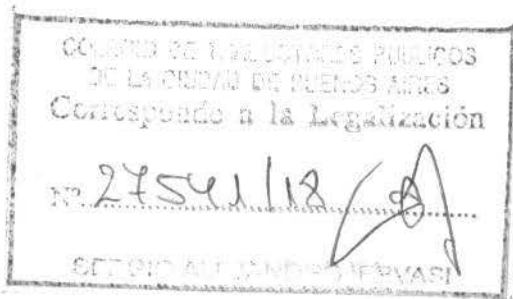 COLEGIO DE TRADUCTORES PUBLICOS
DE LA CIUDAD DE BUENOS AIRES
Corresponde a la Legalización
Nº 27541/18